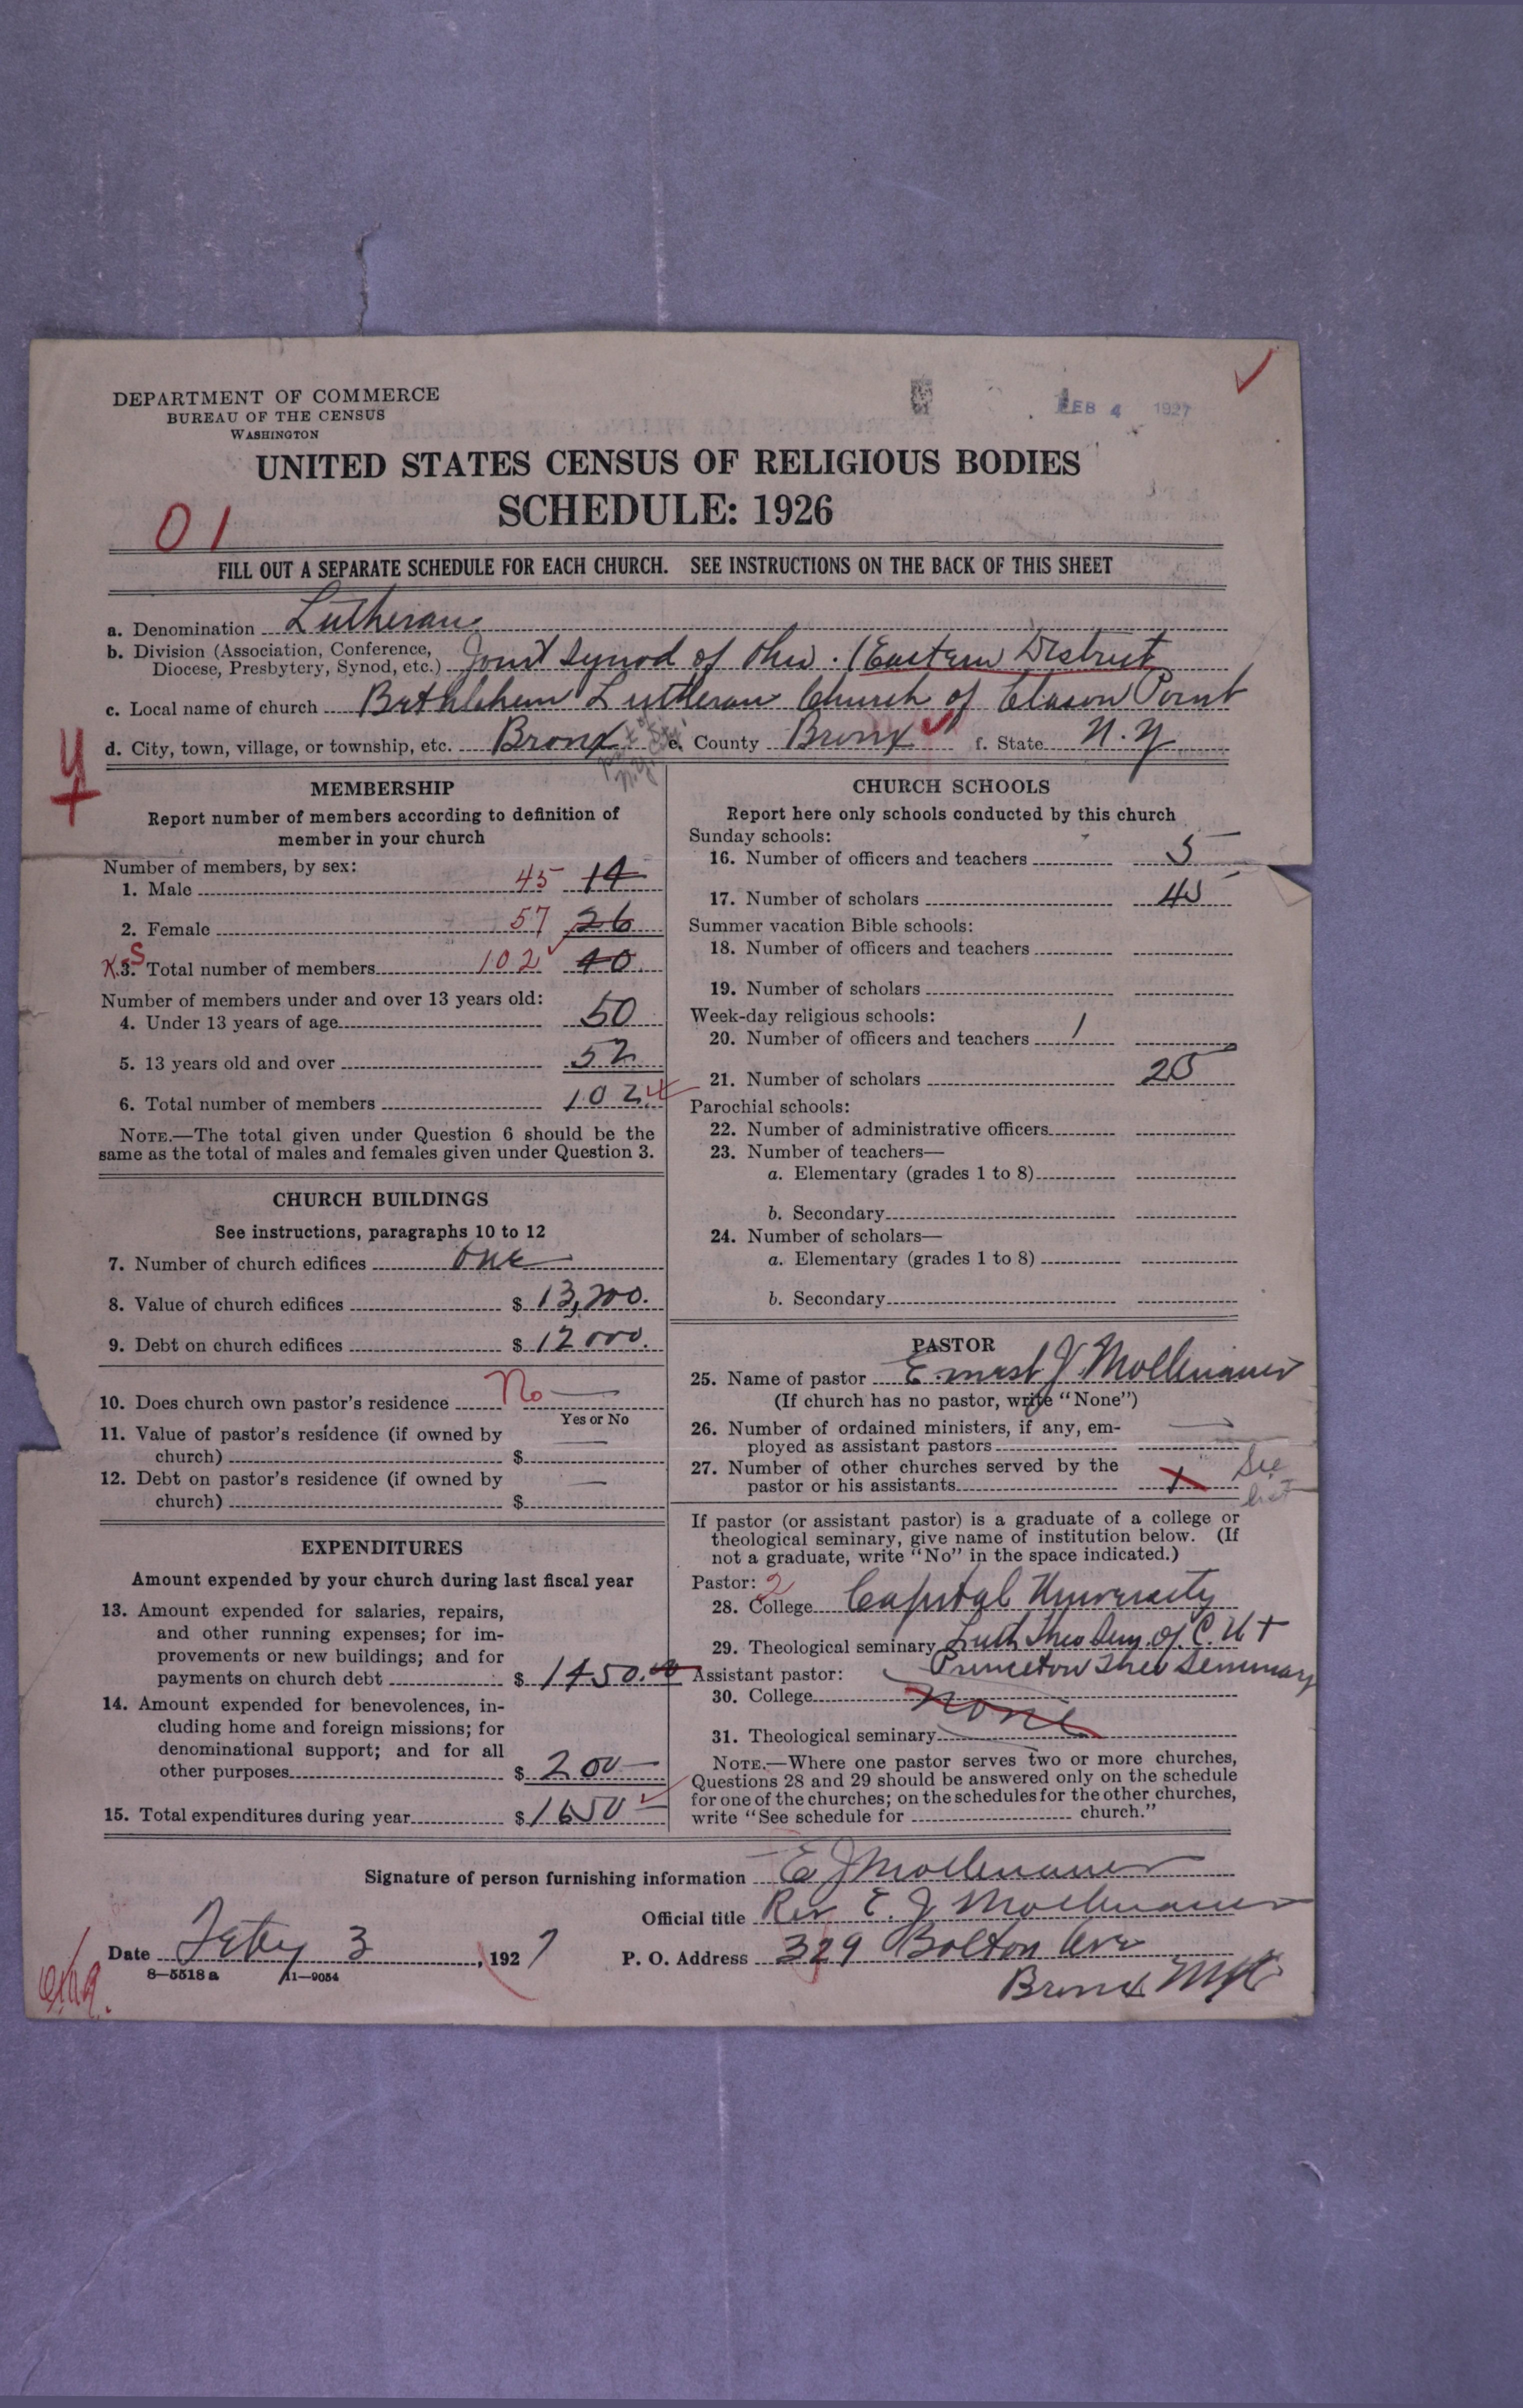 DEPARTMENT OF COMMERCE
BUREAU OF THE CENSUS
WASHINGTON
FEB 4 1927
UNITED STATES CENSUS OF RELIGIOUS BODIES
SCHEDULE: 1926
01
FILL OUT A SEPARATE SCHEDULE FOR EACH CHURCH. SEE INSTRUCTIONS ON THE BACK OF THIS SHEET
a. Denomination Lutheran
b. Division (Association, Conference, Diocese, Presbytery, Synod, etc.) Joint Synod of Ohio. (Eastern District
c. Local name of church Bethlehem Lutheran Church of Clason Point
d. City, town, village, or township, etc. Bronx e. County Bronx f. State N.Y.
MEMBERSHIP
Report number of members according to definition of
member in your church
Number of members, by sex:
1. Male 45 14
2. Female 57 26
3. Total number of members 102 40
Number of members under and over 13 years old:
4. Under 13 years of age 50
5. 13 years old and over 52
6. Total number of members 102
NOTE.—The total given under Question 6 should be the
same as the total of males and females given under Question 3.
CHURCH BUILDINGS
See instructions, paragraphs 10 to 12
7. Number of church edifices one
8. Value of church edifices $ 13,200.
9. Debt on church edifices $ 12000.
10. Does church own pastor's residence No
Yes or No
11. Value of pastor's residence (if owned by
church) $ —
12. Debt on pastor's residence (if owned by
church) $ —
EXPENDITURES
Amount expended by your church during last fiscal year
13. Amount expended for salaries, repairs,
and other running expenses; for im-
provements or new buildings; and for
payments on church debt $ 1450.00
14. Amount expended for benevolences, in-
cluding home and foreign missions; for
denominational support; and for all
other purposes $ 200—
15. Total expenditures during year $ 1650—
CHURCH SCHOOLS
Report here only schools conducted by this church
Sunday schools:
16. Number of officers and teachers 5
17. Number of scholars 45
Summer vacation Bible schools:
18. Number of officers and teachers
19. Number of scholars
Week-day religious schools:
20. Number of officers and teachers 1
21. Number of scholars 25
Parochial schools:
22. Number of administrative officers
23. Number of teachers—
a. Elementary (grades 1 to 8)
b. Secondary
24. Number of scholars—
a. Elementary (grades 1 to 8)
b. Secondary
PASTOR
25. Name of pastor Ernest J. Mollenauer
(If church has no pastor, write "None")
26. Number of ordained ministers, if any, em-
ployed as assistant pastors —
27. Number of other churches served by the
pastor or his assistants See
If pastor (or assistant pastor) is a graduate of a college or
theological seminary, give name of institution below. (If
not a graduate, write "No" in the space indicated.)
Pastor: 2
28. College Capital University
29. Theological seminary Luth Theo Sem. of C. U +
Princeton Theo Seminary
Assistant pastor:
30. College none
31. Theological seminary
NOTE.—Where one pastor serves two or more churches,
Questions 28 and 29 should be answered only on the schedule
for one of the churches; on the schedules for the other churches,
write "See schedule for church."
Signature of person furnishing information E J Mollenauer
Official title Rev. E. J. Mollenauer
Date Feby 3, 1927 P. O. Address 329 Bolton Ave
Bronx NYC
8—5518a 11—9054